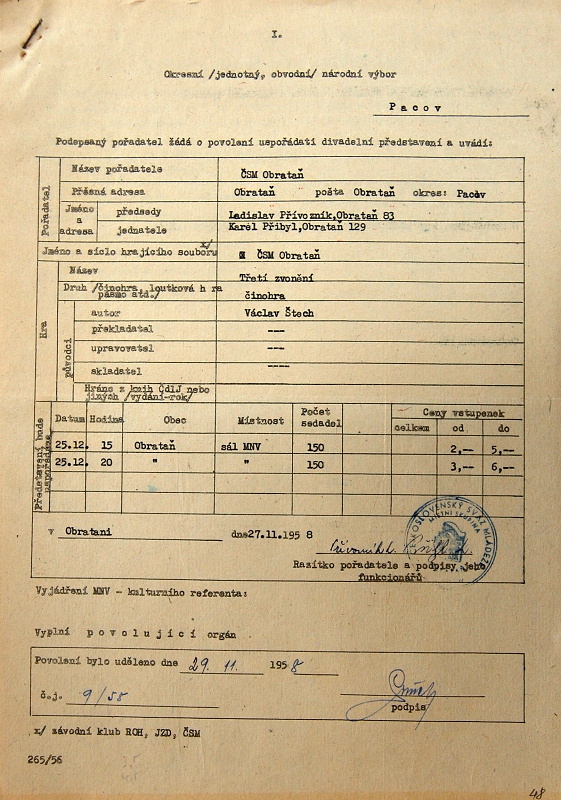 I.
Okresní /jednotný, obvodní/ národní výbor
Pacov
Podepsaný pořadatel žádá o povolení uspořádati divadelní představení a uvádí:
Pořadatel
Název pořadatele ČSM Obrataň
Přesná adresa Obrataň pošta Obrataň okres: Pacov
Jméno a adresa
předsedy Ladislav Přívozník,Obrataň 83
jednatele Karel Přibyl,Obrataň 129
Jméno a síclo hrajícího souboru x/ ČSM Obrataň
Hra
Název Třetí zvonění
Druh /činohra, loutková h ra
pásmo atd./ činohra
původci
autor Václav Štech
překladatel ---
upravovatel ---
skladatel ----
Hráno z knih ČDLJ nebo
jiných /vydání-rok/
Představení bude uspořádáno
Datum Hodina Obec Místnost Počet sedadel Ceny vstupenek
celkem od do
25.12. 15 Obrataň sál MNV 150 2,-- 5,--
25.12. 20 " " 150 3,-- 6,--
v Obratani dne27.11.195 8
ČESKOSLOVENSKÝ SVAZ MLÁDEŽE
MÍSTNÍ SKUPINA
Razítko pořadatele a podpisy jeho
funkcionářů
Vyjádření MNV - kulturního referenta:
Vyplní povolující orgán
Povolení bylo uděleno dne 29. 11. 195 8
č.j. 9/58
podpis
x/ závodní klub ROH, JZD, ČSM
265/56
48